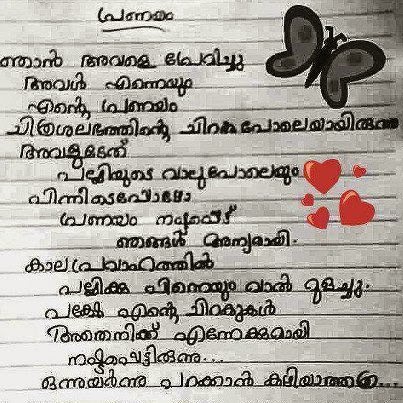 പ്രണയം
ഞാൻ അവളെ പ്രേമിച്ചു
അവൾ എന്നെയും
എന്റെ പ്രണയം
ചിത്രശലഭത്തിന്റെ ചിറകുപോലെയായിരുന്നു
അവളുടേത്
പല്ലിയുടെ വാലുപോലെയും
പിന്നീടെപ്പോഴോ
പ്രണയം നഷ്ടപ്പെട്ട്
ഞങ്ങൾ അന്യരായി.
കാലപ്രവാഹത്തിൽ
പല്ലിക്കു പിന്നെയും വാൽ മുളച്ചു.
പക്ഷേ എന്റെ ചിറകുകൾ
അതെനിക്ക് എന്നേക്കുമായി
നഷ്ടപ്പെട്ടിരുന്നു...
ഒന്നുയർന്നു പറക്കാൻ കഴിയാത്തത്ര...